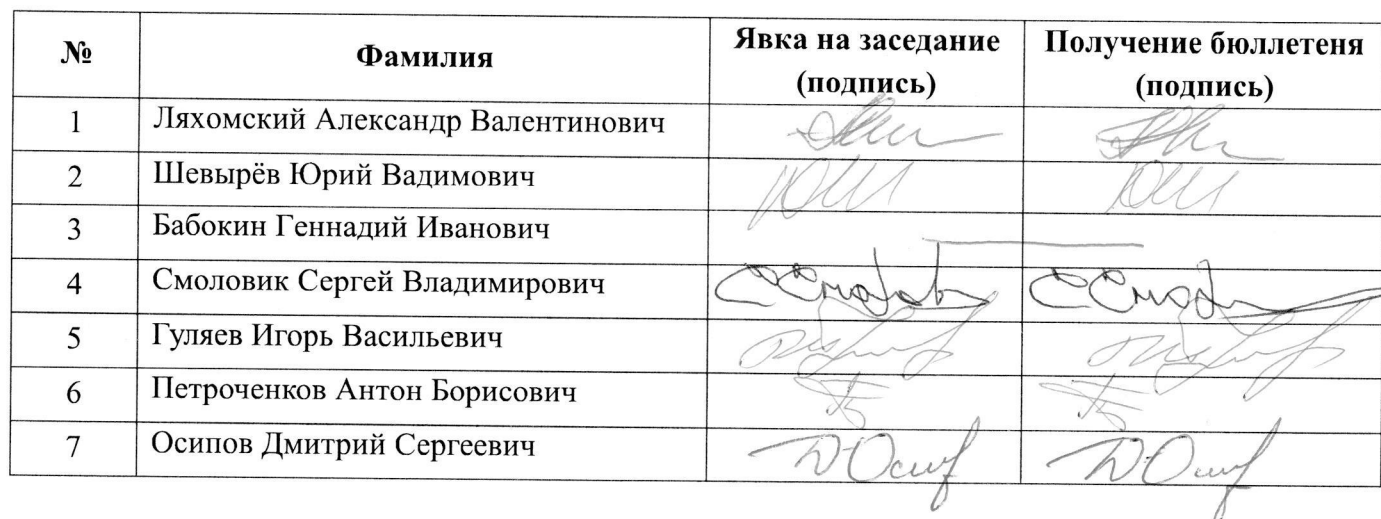 № Фамилия Явка на заседание (подпись) Получение бюллетеня (подпись)
1 Ляхомский Александр Валентинович
2 Шевырёв Юрий Вадимович
3 Бабокин Геннадий Иванович
4 Смоловик Сергей Владимирович
5 Гуляев Игорь Васильевич
6 Петроченков Антон Борисович
7 Осипов Дмитрий Сергеевич